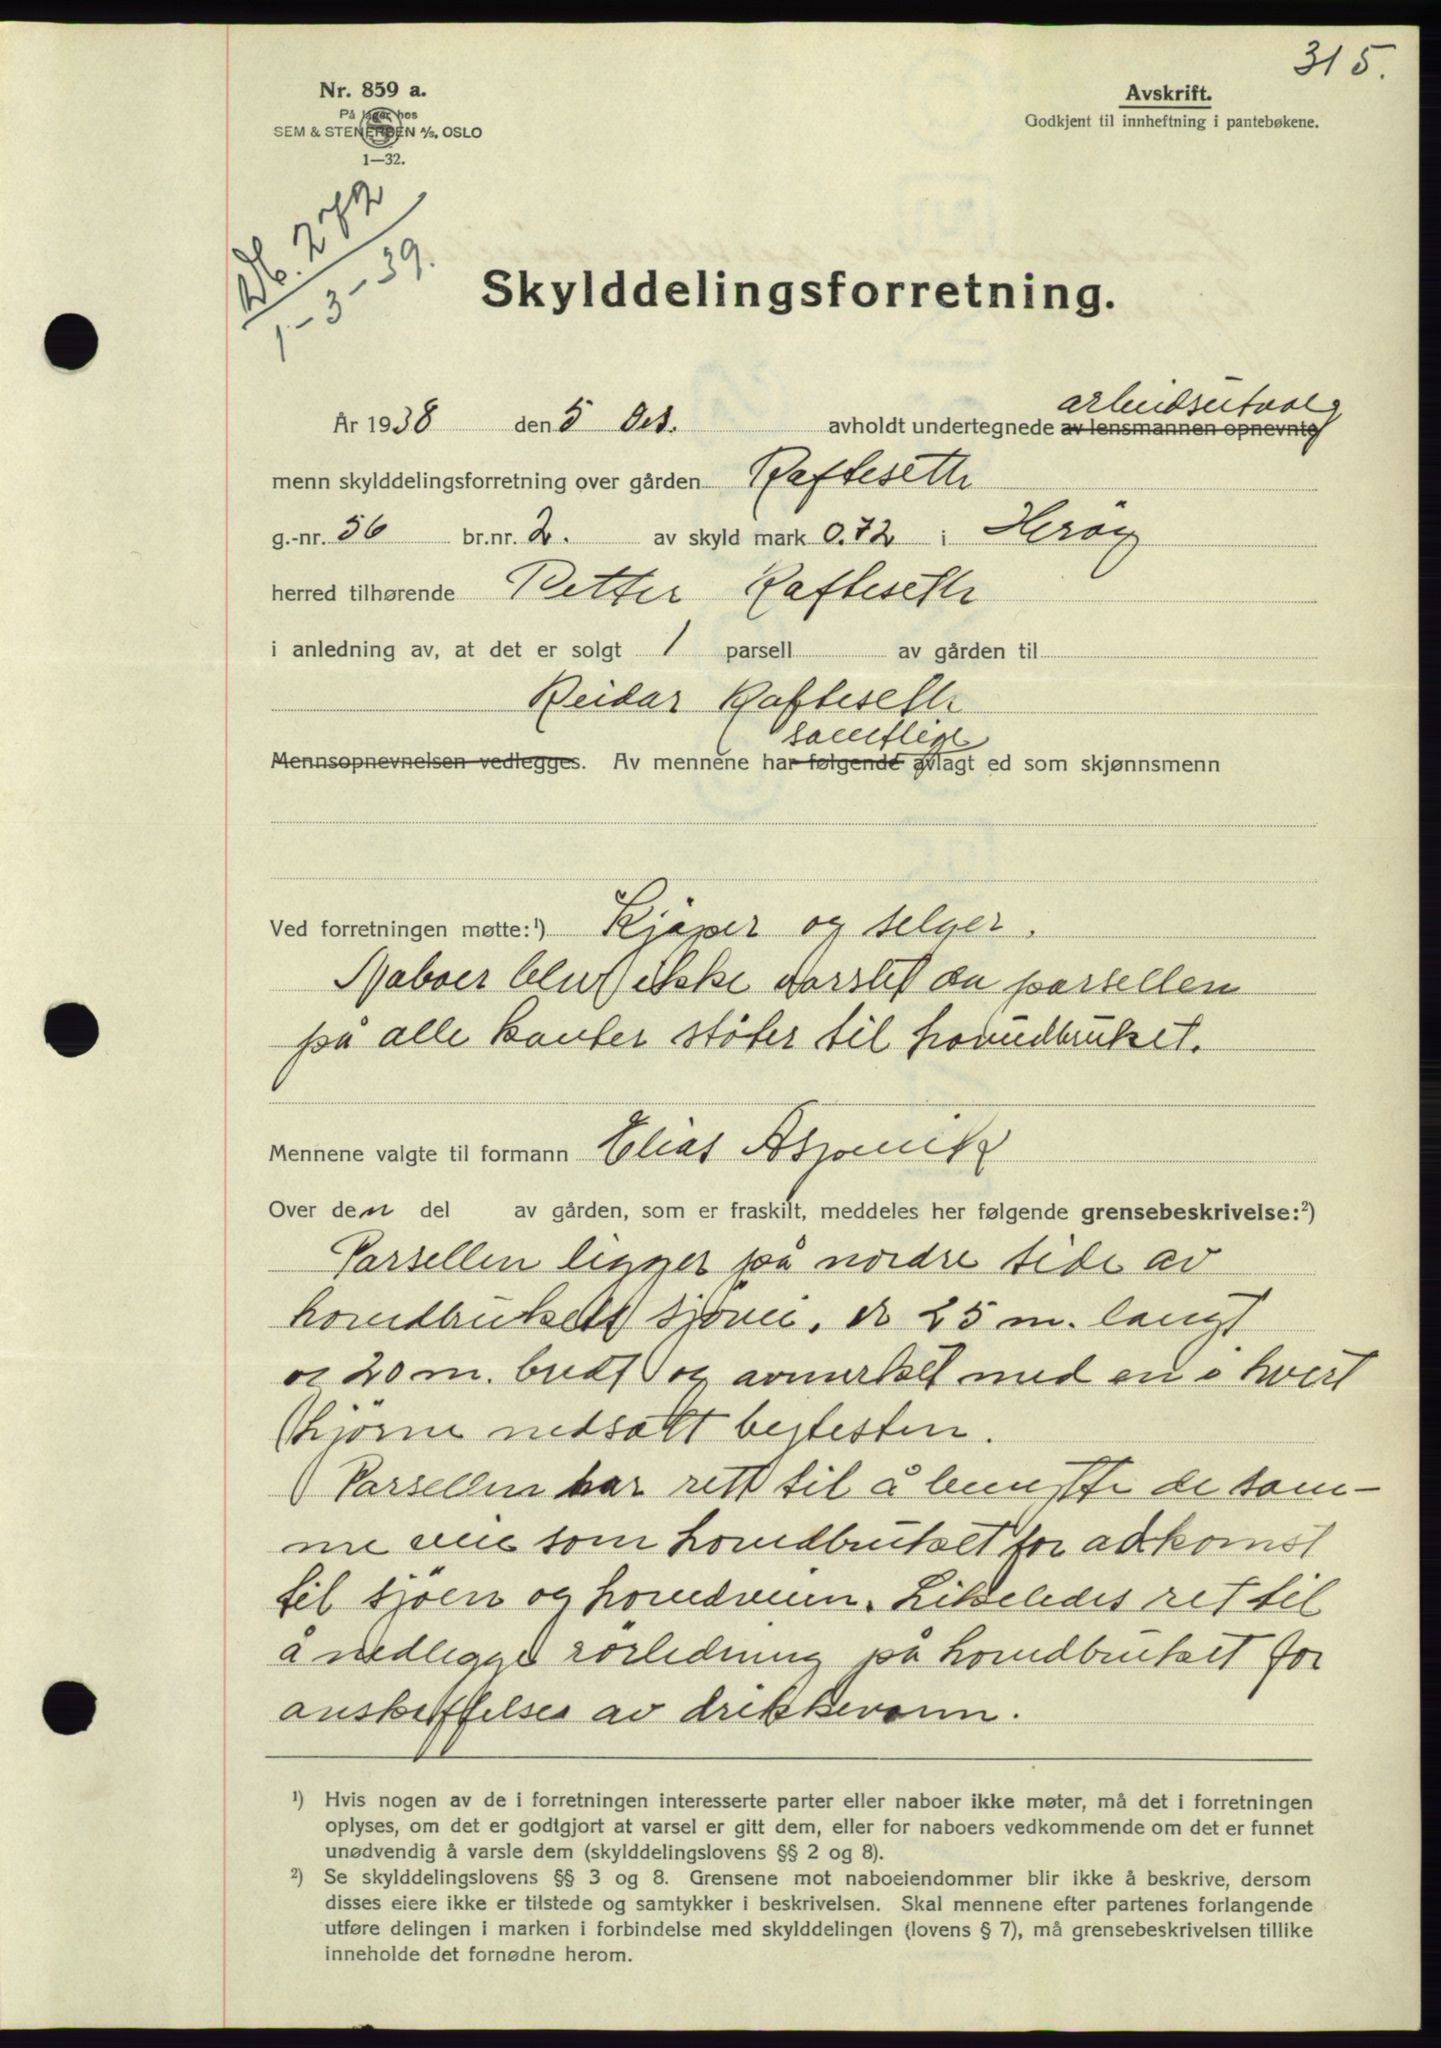 315.
Nr. 859 a.
På lager hos
SEM & STENERSEN A/S, OSLO
1—32.
Avskrift.
Godkjent til innheftning i pantebøkene.
Db. 272
1-3-39.
Skylddelingsforretning.
arbeidsutvalg
År 1938 den 5 Des. avholdt undertegnede av lensmannen opnevnte
menn skylddelingsforretning over gården Rafteseth
g.-nr. 56 br.nr. 2. av skyld mark 0.72 i Herøy
herred tilhørende Petter Rafteseth
i anledning av, at det er solgt 1 parsell av gården til
Reidar Rafteseth
samtlige
Mennsopnevnelsen vedlegges. Av mennene har følgende avlagt ed som skjønnsmenn
Ved forretningen møtte:¹) Kjøper og selger.
Naboer blev ikke varslet da parsellen
på alle kanter støter til hovedbruket.
Mennene valgte til formann Elias
Over den del av gården, som er fraskilt, meddeles her følgende grensebeskrivelse:²)
Parsellen ligger på nordre side av
hovedbrukets sjøvei, er 25 m. langt
og 20 m. bredt og avmerket med en i hvert
hjørne nedsatt bytesten.
Parsellen har rett til å benytte de sam-
me veie som hovedbruket for adkomst
til sjøen og hovedveien. Likeledes ret til
å nedlegge rørledning på hovedbruket for
anskaffelse av drikkevann.
¹) Hvis nogen av de i forretningen interesserte parter eller naboer ikke møter, må det i forretningen
oplyses, om det er godtgjort at varsel er gitt dem, eller for naboers vedkommende om det er funnet
unødvendig å varsle dem (skylddelingslovens §§ 2 og 8).
²) Se skylddelingslovens §§ 3 og 8. Grensene mot naboeiendommer blir ikke å beskrive, dersom
disses eiere ikke er tilstede og samtykker i beskrivelsen. Skal mennene efter partenes forlangende
utføre delingen i marken i forbindelse med skylddelingen (lovens § 7), må grensebeskrivelsen tillike
inneholde det fornødne herom.